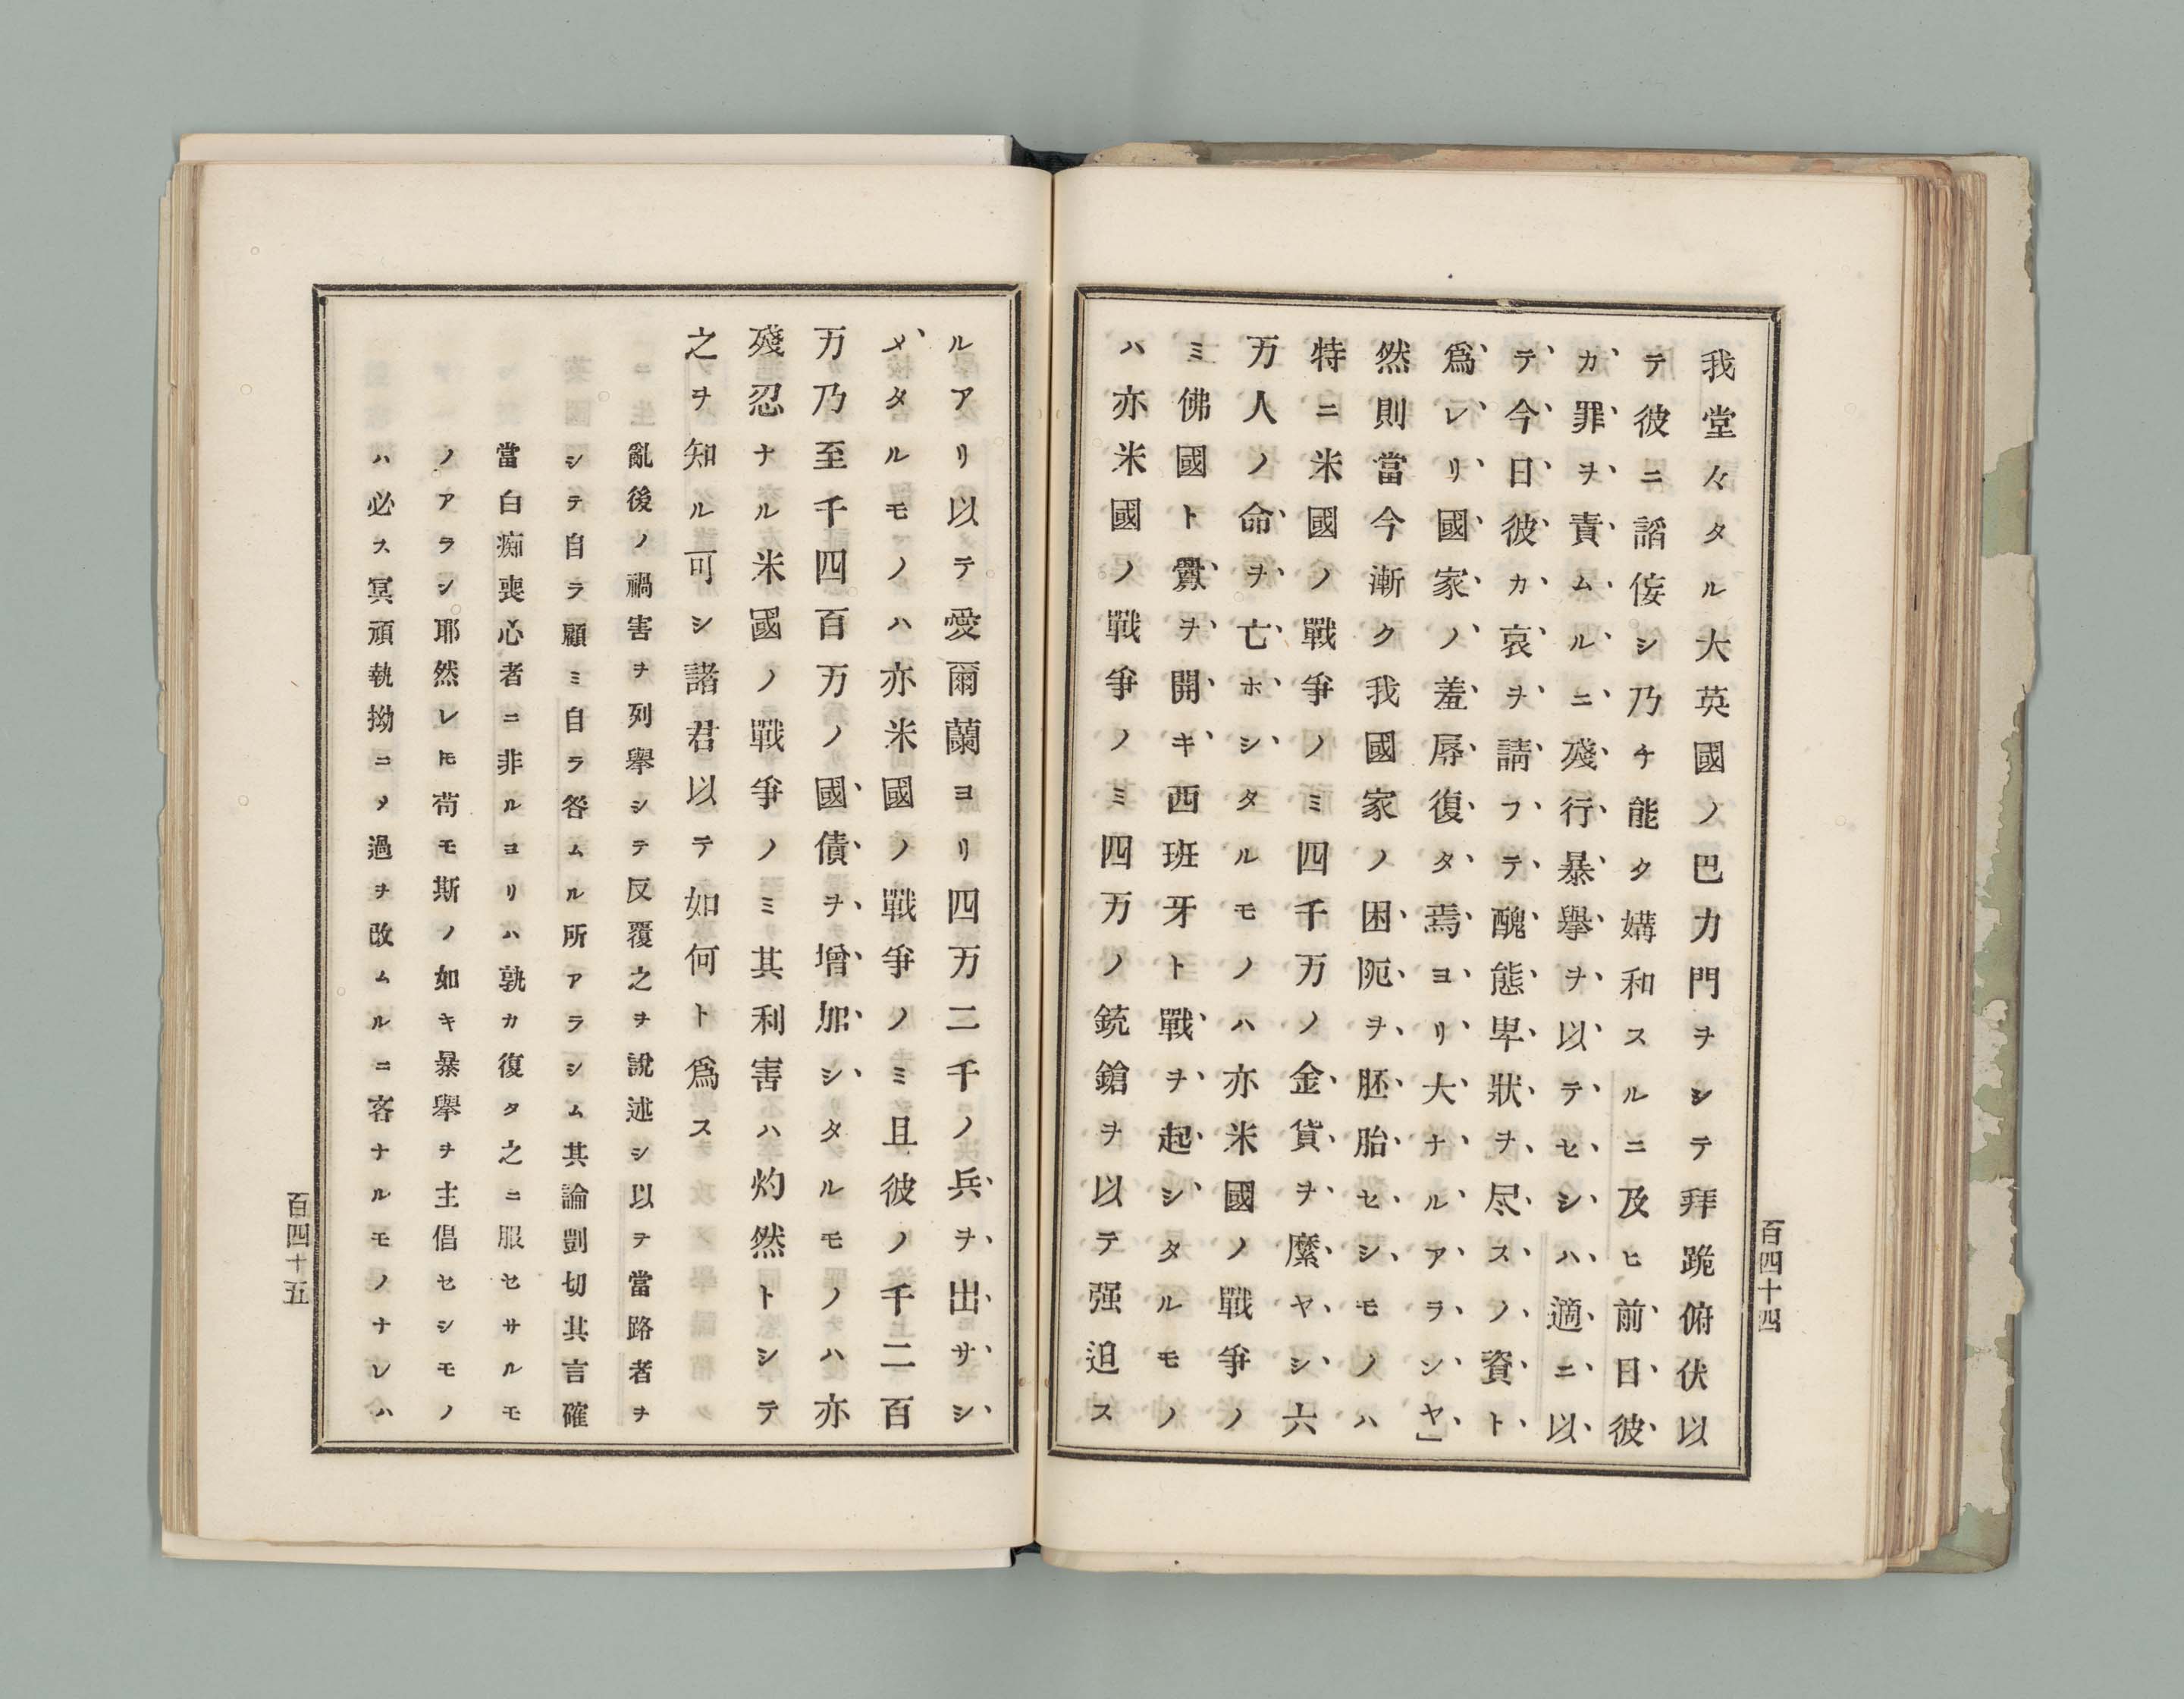 我堂々タル大英國ノ巴力門ヲシテ拜跪俯伏以
テ彼ニ謟侫シ乃チ能タ媾和スルニ及ヒ前日彼
カ罪ヲ責ムルニ殘行暴擧ヲ以テセシハ適ニ以
テ今日彼カ哀ヲ請フテ醜態卑狀ヲ尽スノ資ト
爲レリ國家ノ羞辱復タ焉ヨリ大ナルアラシヤ」
然則當今漸ク我國家ノ困阨ヲ胚胎セシモノハ
特ニ米國ノ戰爭ノミ四千万ノ金貨ヲ縻ヤシ六
万人ノ命ヲ亡ホシタルモノハ亦米國ノ戰爭ノ
ミ佛國ト釁ヲ開キ西班牙ト戰ヲ起シタルモノ
ハ亦米國ノ戰爭ノミ四万ノ銃鎗ヲ以テ强迫ス
百四十四
ルアリ以テ愛爾蘭ヨリ四万二千ノ兵ヲ出サシ
メタルモノハ亦米國ノ戰爭ノミ且彼ノ千二百
万乃至千四百万ノ國債ヲ增加シタルモノハ亦
殘忍ナル米國ノ戰爭ノミ其利害ハ灼然トシテ
之ヲ知ル可シ諸君以テ如何ト爲ス
亂後ノ禍害ヲ列擧シテ反覆之ヲ說述シ以テ當路者ヲ
シテ自ラ顧ミ自ラ咎ムル所アラシム其論剴切其言確
當白痴喪心者ニ非ルヨリハ孰カ復タ之ニ服セサルモ
ノアラシ耶然レ𪜈苟モ斯ノ如キ暴擧ヲ主倡セシモノ
ハ必ス冥頑執拗ニメ過ヲ改ムルニ吝ナルモノナレハ
百四十五